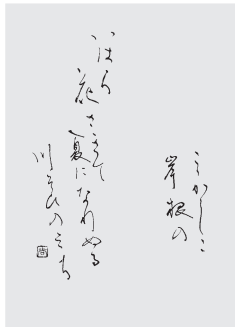 こゝかしこ
岸根の
いはら
花さきて
夏になりぬる
川そひのみち